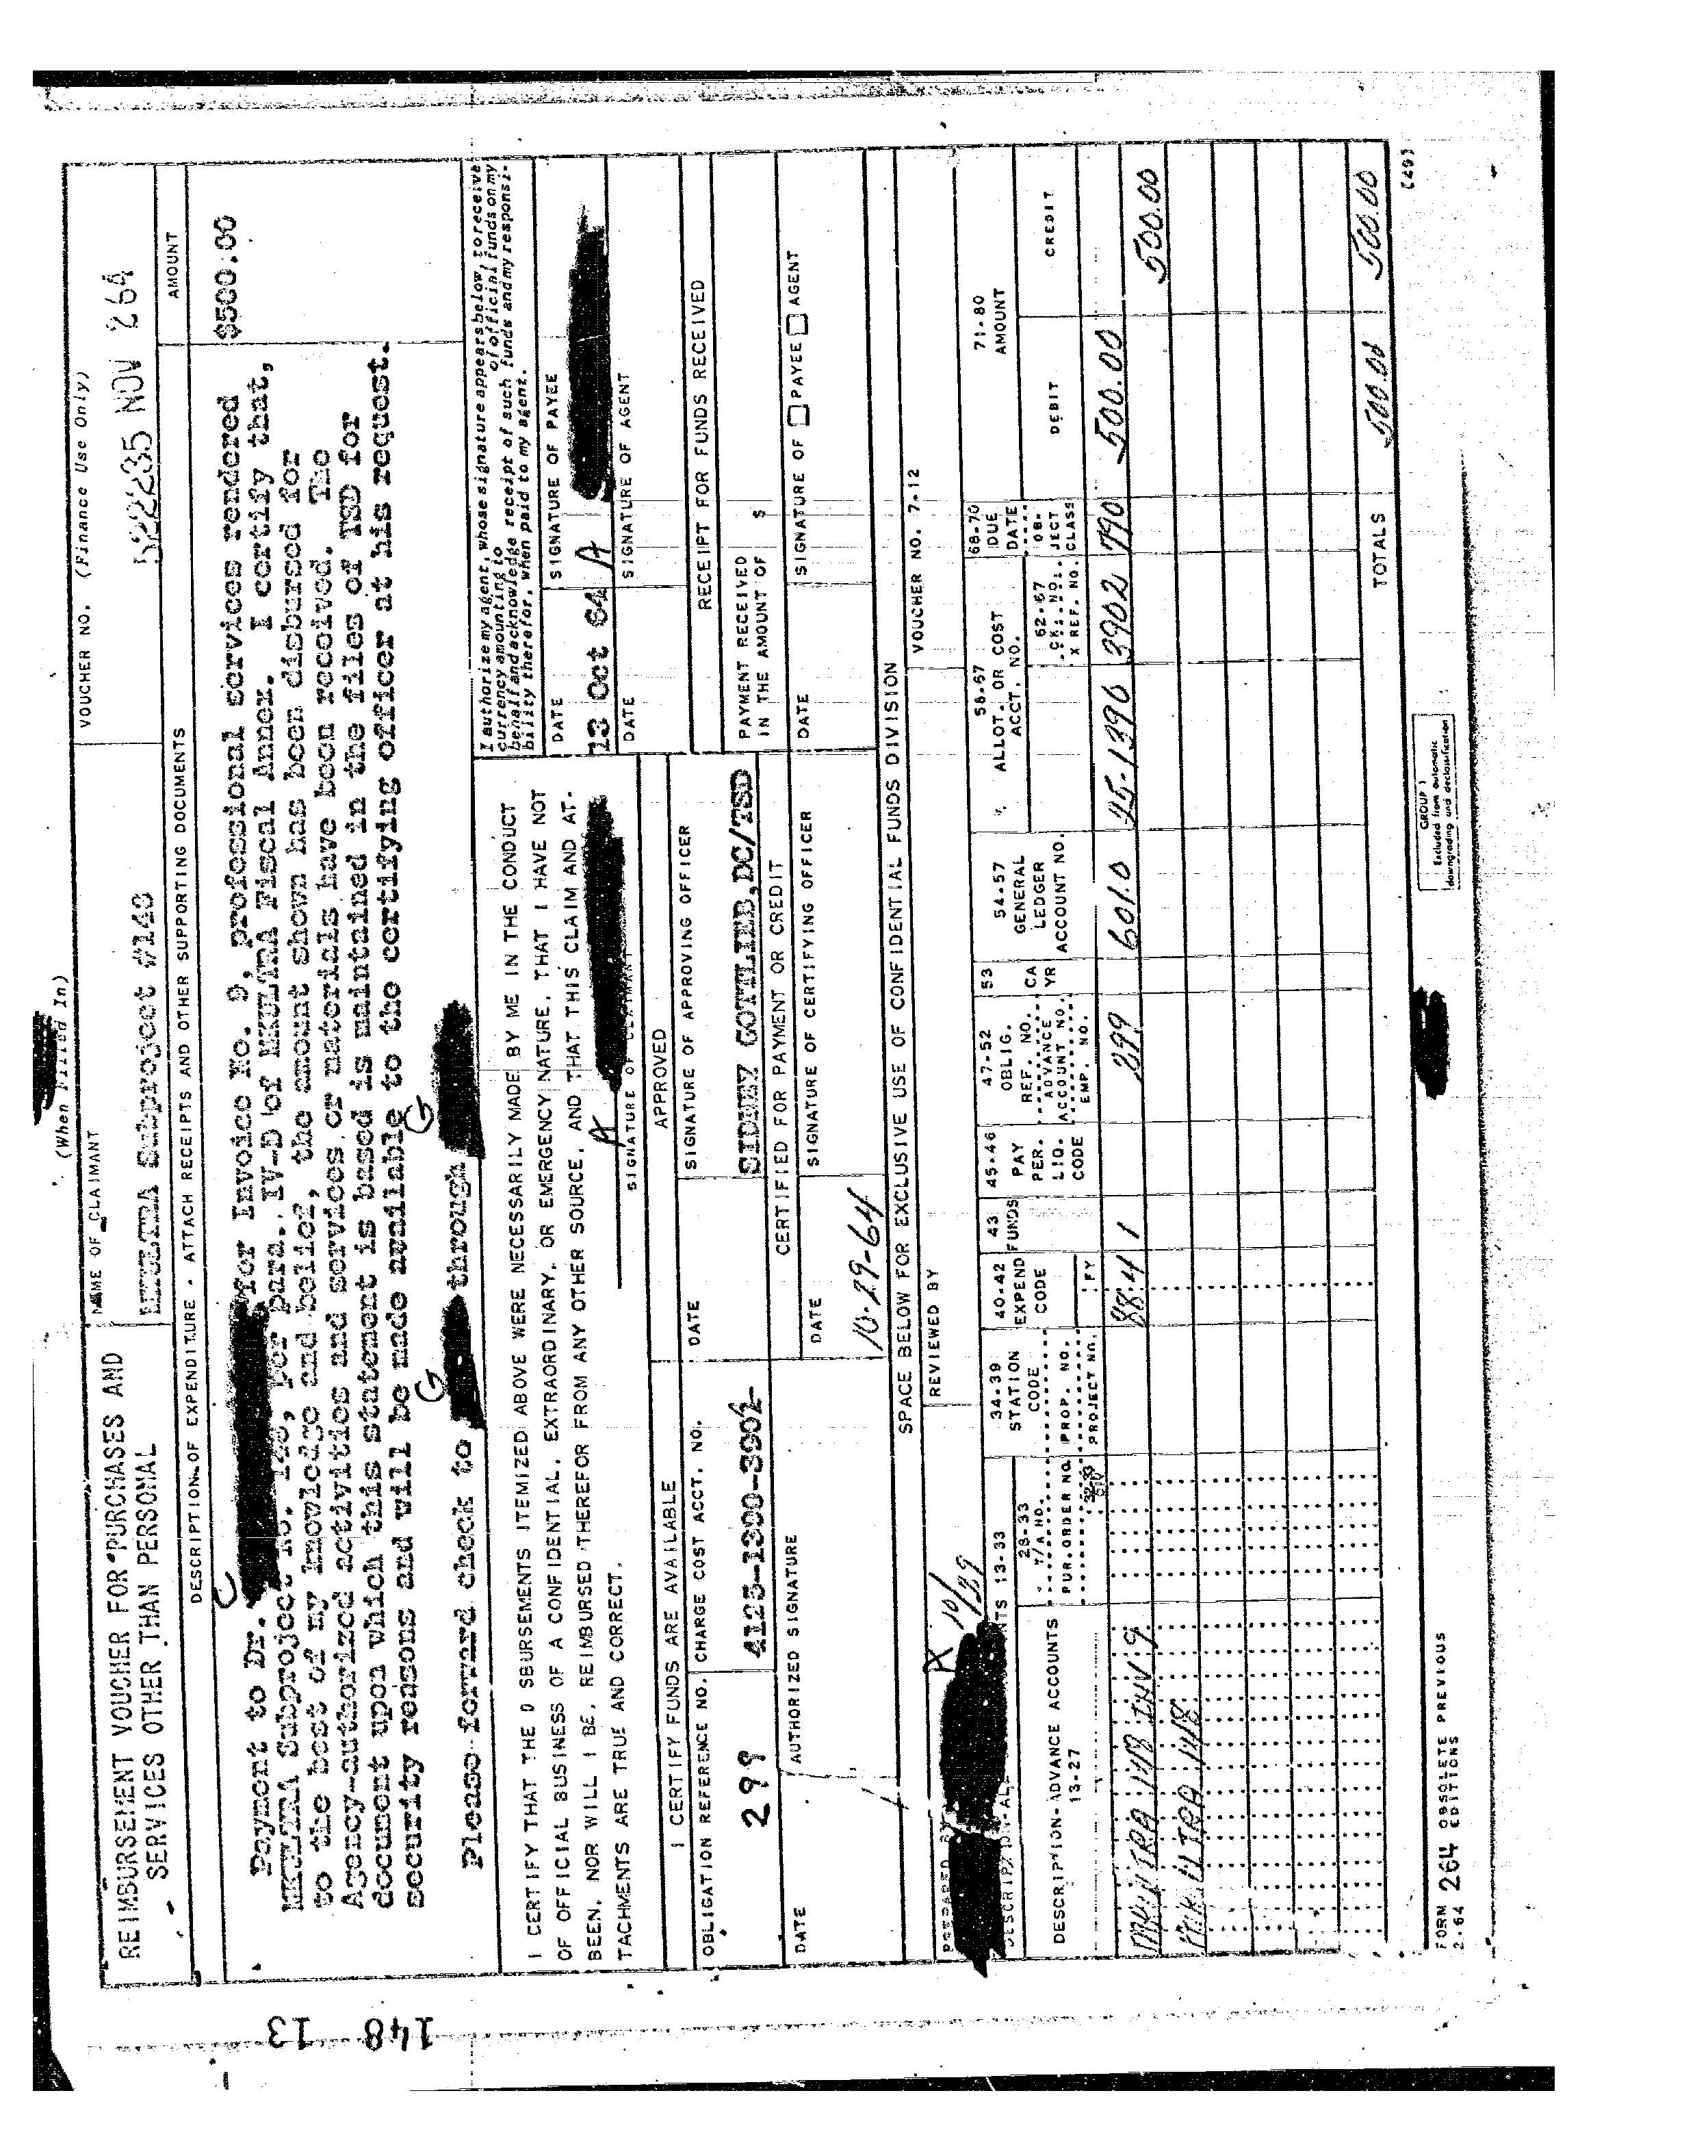 (When Filled In)
REIMBURSEMENT VOUCHER FOR PURCHASES AND
SERVICES OTHER THAN PERSONAL
NAME OF CLAIMANT
MKULTRA Subproject #148
VOUCHER NO. (Finance Use Only)
52235 NOV 264
DESCRIPTION OF EXPENDITURE - ATTACH RECEIPTS AND OTHER SUPPORTING DOCUMENTS
AMOUNT
C
Payment to Dr. for Invoice No. 9, professional services rendered $500.00
MKULTRA Subproject No. 148, per para. IV-D of MKULTRA Fiscal Annex. I certify that,
to the best of my knowledge and belief, the amount shown has been disbursed for
Agency-authorized activities and services or materials have been received. The
document upon which this statement is based is maintained in the files of TSD for
security reasons and will be made available to the certifying officer at his request.
G G
Please forward check to through
I CERTIFY THAT THE D SBURSEMENTS ITEMIZED ABOVE WERE NECESSARILY MADE BY ME IN THE CONDUCT
OF OFFICIAL BUSINESS OF A CONFIDENTIAL, EXTRAORDINARY, OR EMERGENCY NATURE, THAT I HAVE NOT
BEEN, NOR WILL I BE, REIMBURSED THEREFOR FROM ANY OTHER SOURCE, AND THAT THIS CLAIM AND AT-
TACHMENTS ARE TRUE AND CORRECT.
A
SIGNATURE OF CLAIMANT
I authorize my agent, whose signature appears below, to receive
currency amounting to of official funds on my
behalf and acknowledge receipt of such funds and my responsi-
bility therefor, when paid to my agent.
DATE
SIGNATURE OF PAYEE
13 Oct 64 A
DATE
SIGNATURE OF AGENT
I CERTIFY FUNDS ARE AVAILABLE
APPROVED
RECEIPT FOR FUNDS RECEIVED
OBLIGATION REFERENCE NO.
CHARGE COST ACCT. NO.
299
4125-1390-3902
DATE
SIGNATURE OF APPROVING OFFICER
SIDNEY GOTTLIEB, DC/TSD
PAYMENT RECEIVED
IN THE AMOUNT OF $
DATE
AUTHORIZED SIGNATURE
CERTIFIED FOR PAYMENT OR CREDIT
DATE
SIGNATURE OF CERTIFYING OFFICER
10-29-64
DATE
SIGNATURE OF PAYEE AGENT
SPACE BELOW FOR EXCLUSIVE USE OF CONFIDENTIAL FUNDS DIVISION
PREPARED BY
A 10/29
REVIEWED BY
VOUCHER NO. 7-12
DESCRIPTION-ADVANCE ACCOUNTS
13-27
28-33
T/A NO.
PUR. ORDER NO.
34-39
STATION
CODE
PROP. NO.
PROJECT NO.
40-42
EXPEND
CODE
FY
43
FUNDS
45-46
PAY
PER.
LIQ.
CODE
47-52
OBLIG.
REF. NO.
ADVANCE
ACCOUNT NO.
EMP. NO.
53
CA
YR
54-57
GENERAL
LEDGER
ACCOUNT NO.
58-67
ALLOT. OR COST
ACCT. NO.
62-67
CK. NO.
X REF. NO.
68-70
DUE
DATE
OB-
JECT
CLASS
71-80
AMOUNT
DEBIT
CREDIT
MKULTRA 148 INV 9 884 1 299 601.0 45-1390 3902 790 500.00
MKULTRA 148 500.00
TOTALS 500.00 500.00
FORM 264 OBSOLETE PREVIOUS
2-64 EDITIONS
GROUP 1
Excluded from automatic
downgrading and declassification
(49)
148 13